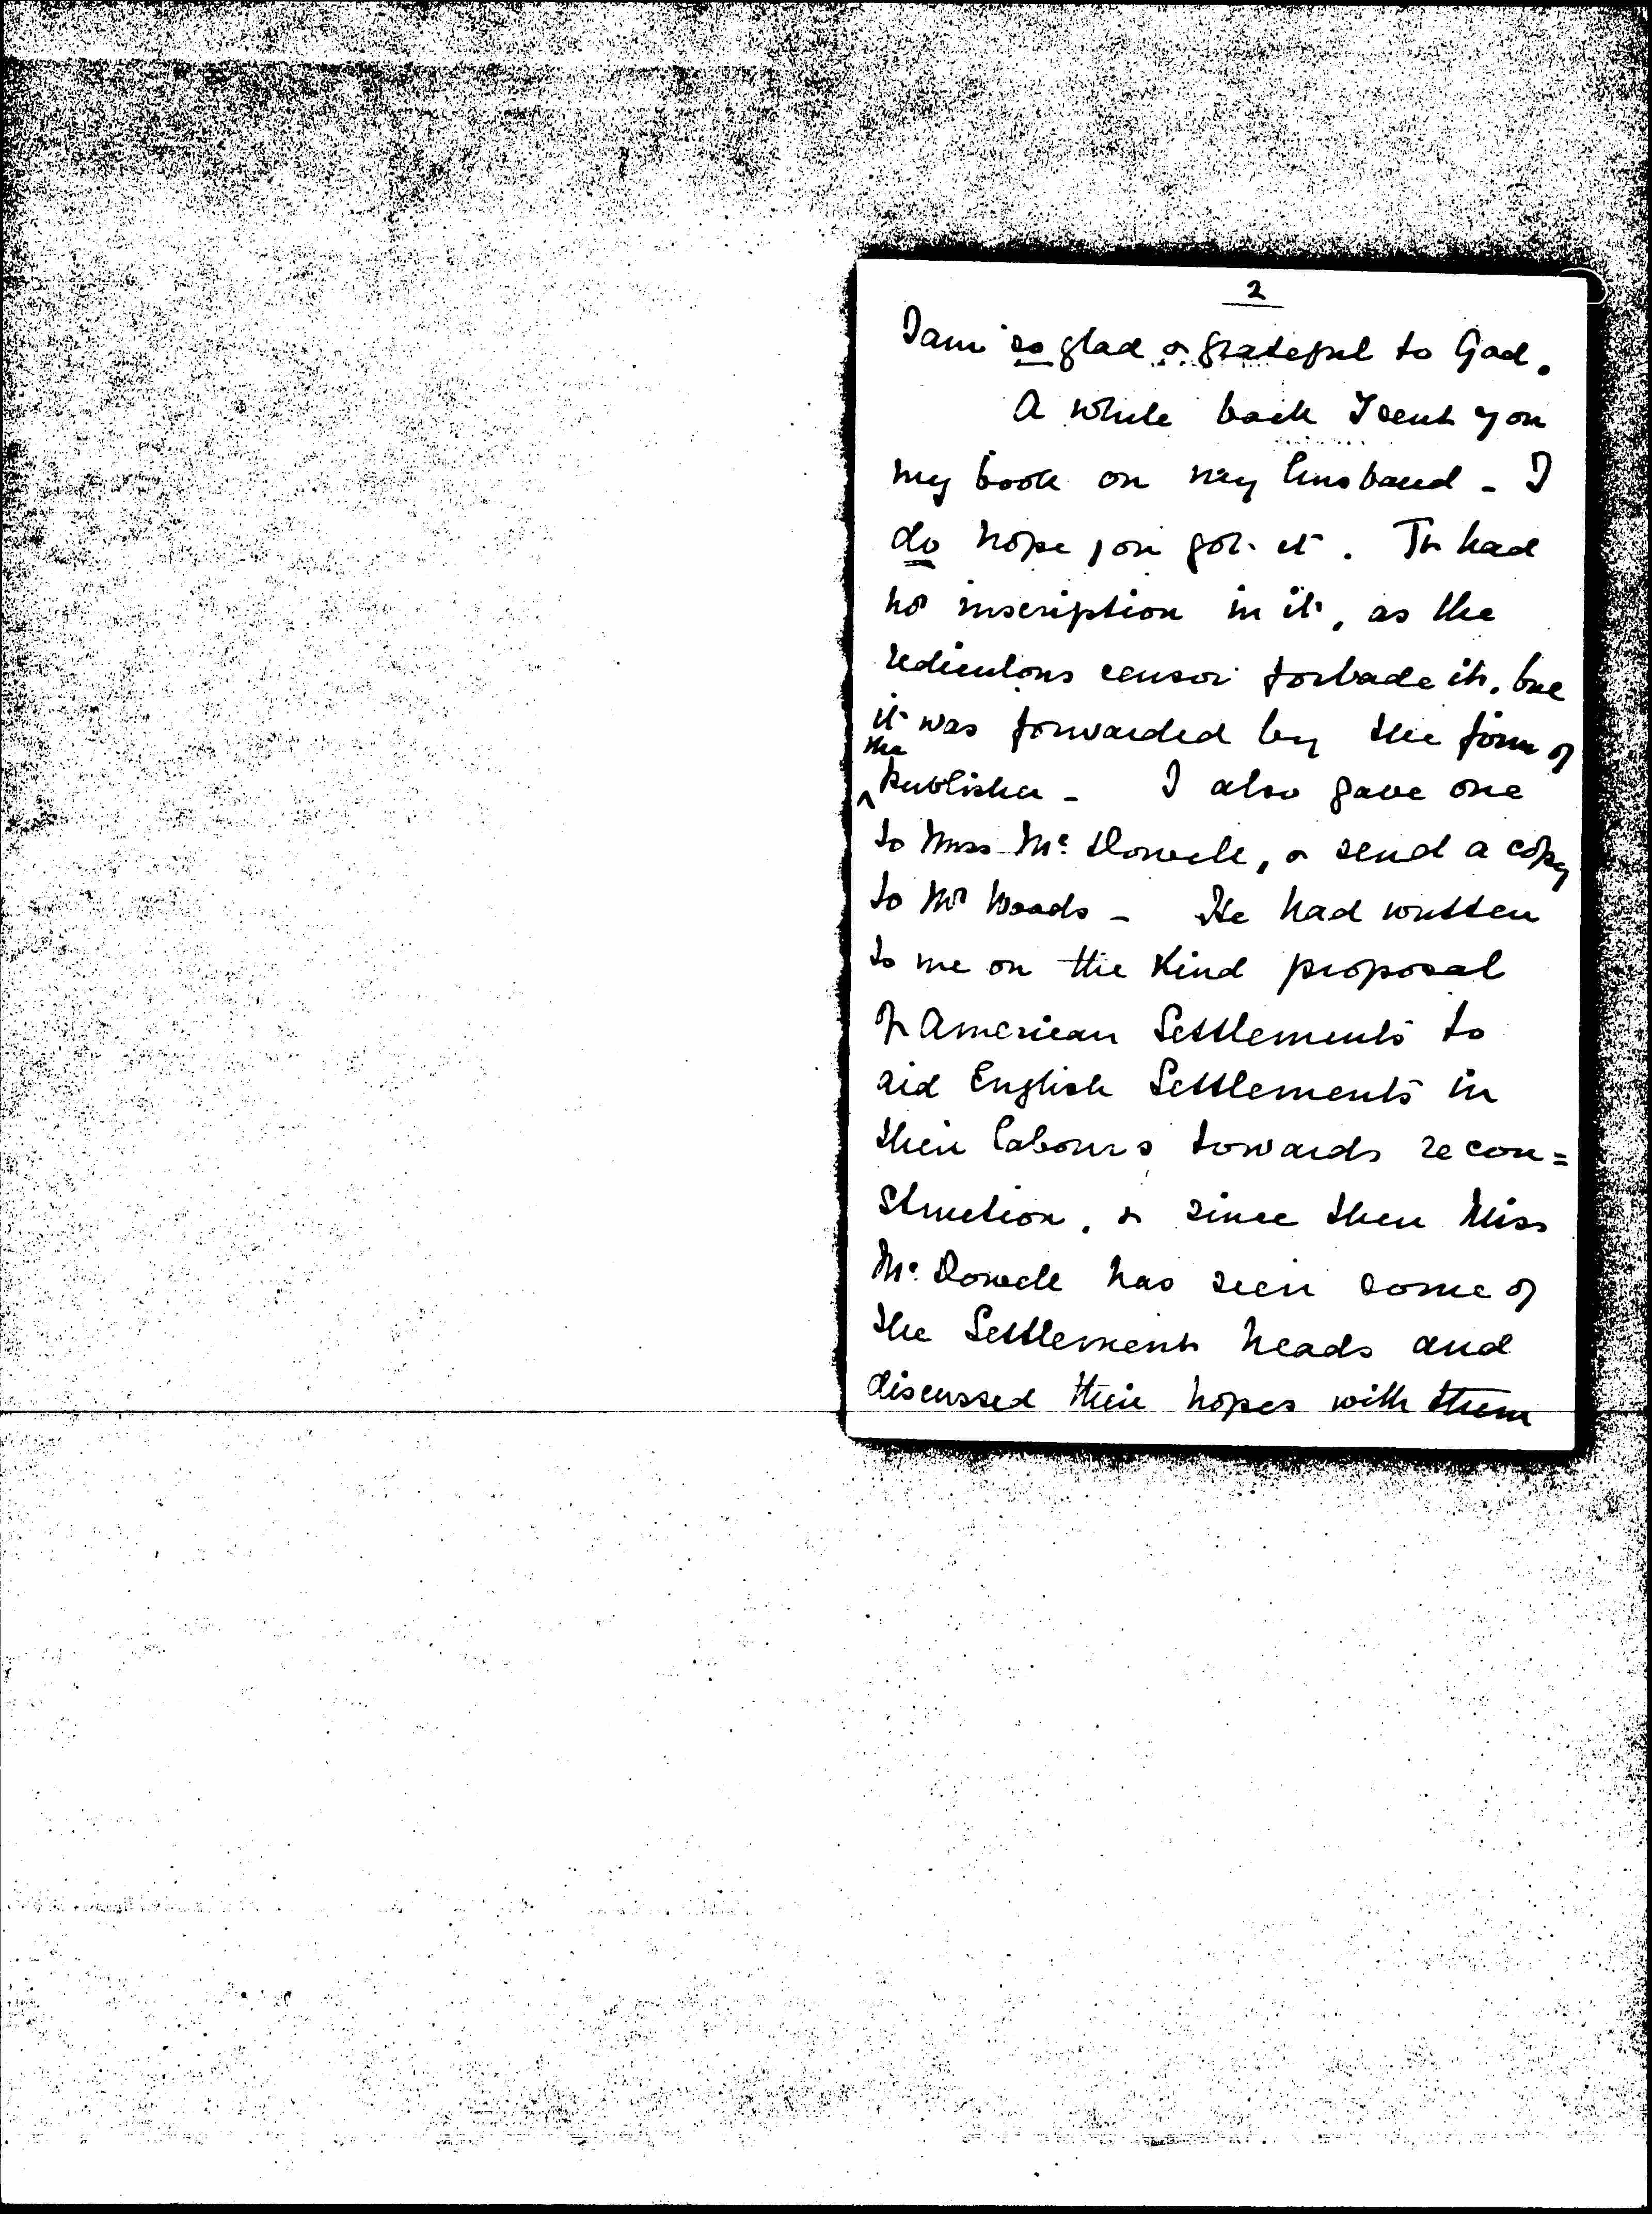 2
I am so glad & grateful to God.
A while back I sent you
my book on my husband - I
do hope you got it. It had
no inscription in it, as the
rediculous censor forbade it, but
it was forwarded by the firm of
the
^ Publisher - I also gave one
to Miss Mc Dowell, & send a copy
to Mr Woods - He had written
to me on the Kind proposal
of American Settlements to
aid English Settlements in
their labours towards recon=
struction, & since then Miss
Mc Dowell has seen some of
the Settlement heads and
discussed their hopes with them